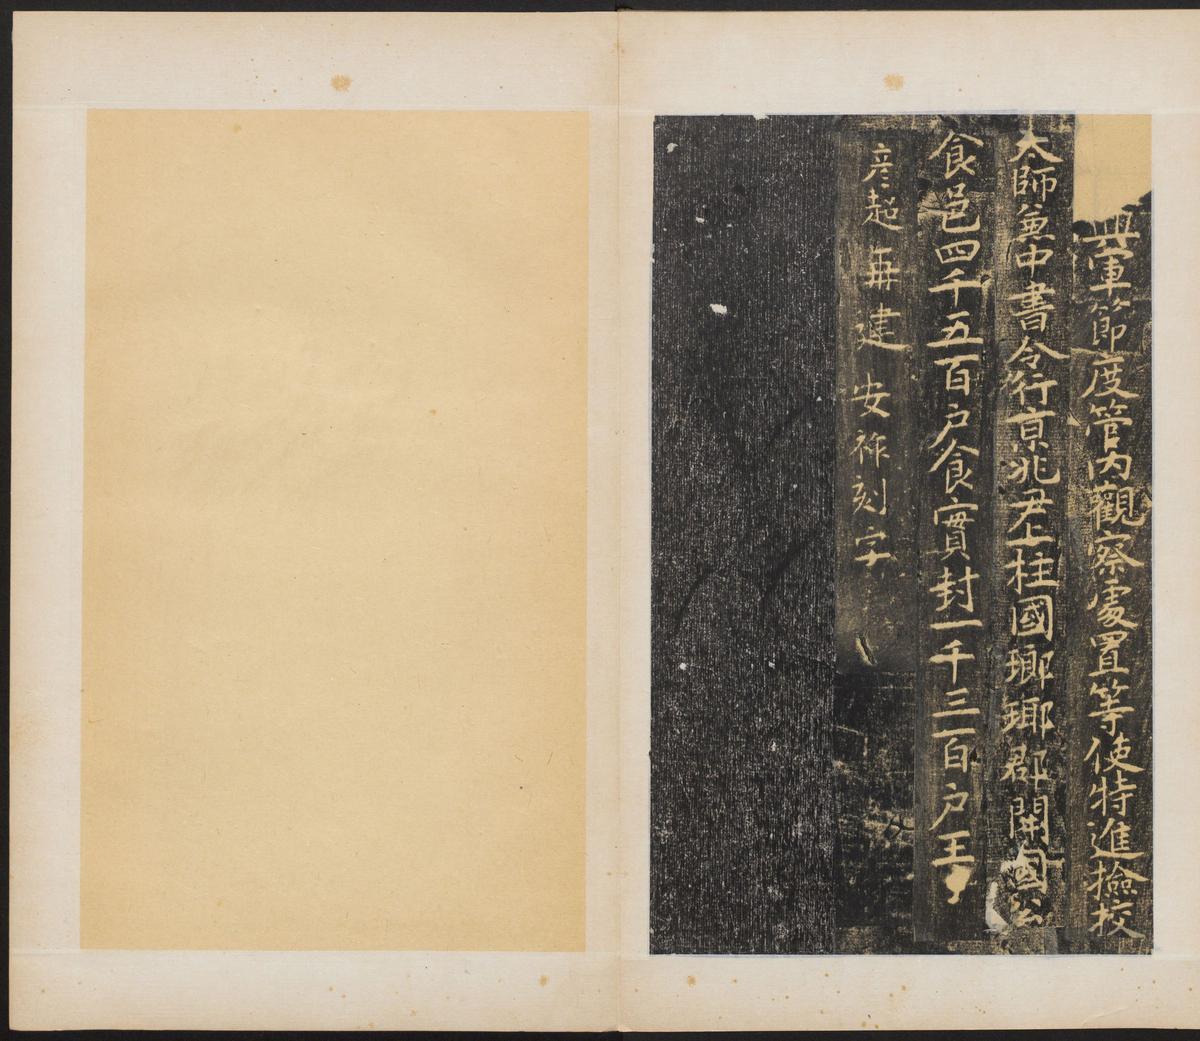 興軍節度管內觀察處置等使特進撿校
太師兼中書令行京兆尹上柱國瑯瑘郡開國公
食邑四千五百戶食實封一千三百戶王
彦超再建 安祚刻字